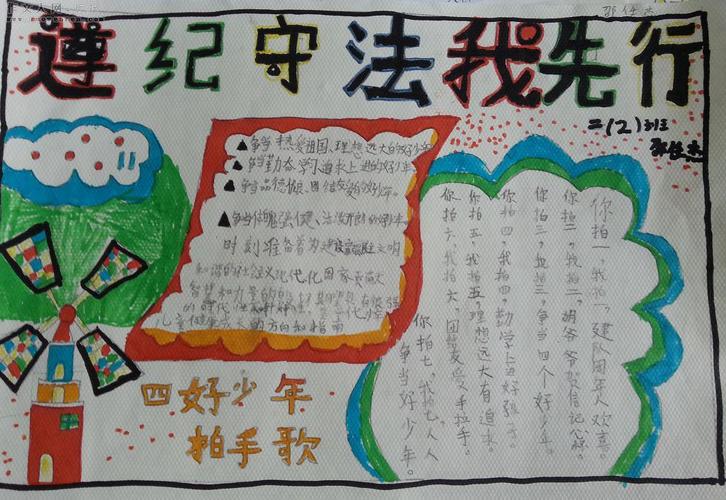 邵佳杰
遵纪守法我先行
二(2)班
邵佳杰
▲争当热爱祖国、理想远大的好少年
▲争当勤奋学习追求上进的好少年
▲争当品德 的好少年。
▲争当体魄强健、活泼开朗的好少年
时刻准备着为建设富强 文明
和谐的社会主义现代化国家贡献
智慧和力量
的时代
儿童健康成长的方向和指南
四好少年
拍手歌
你拍一,我拍一,建队周年人欢喜。
你拍二,我拍二,胡爷爷贺信记心怀。
你拍三,我拍三,争当四个好少年。
你拍四,我拍四,勤学上进好孩子。
你拍五,我拍五,理想远大有追求。
你拍六,我拍六,团结友爱手拉手。
你拍七,我拍七,人人
争当好少年。